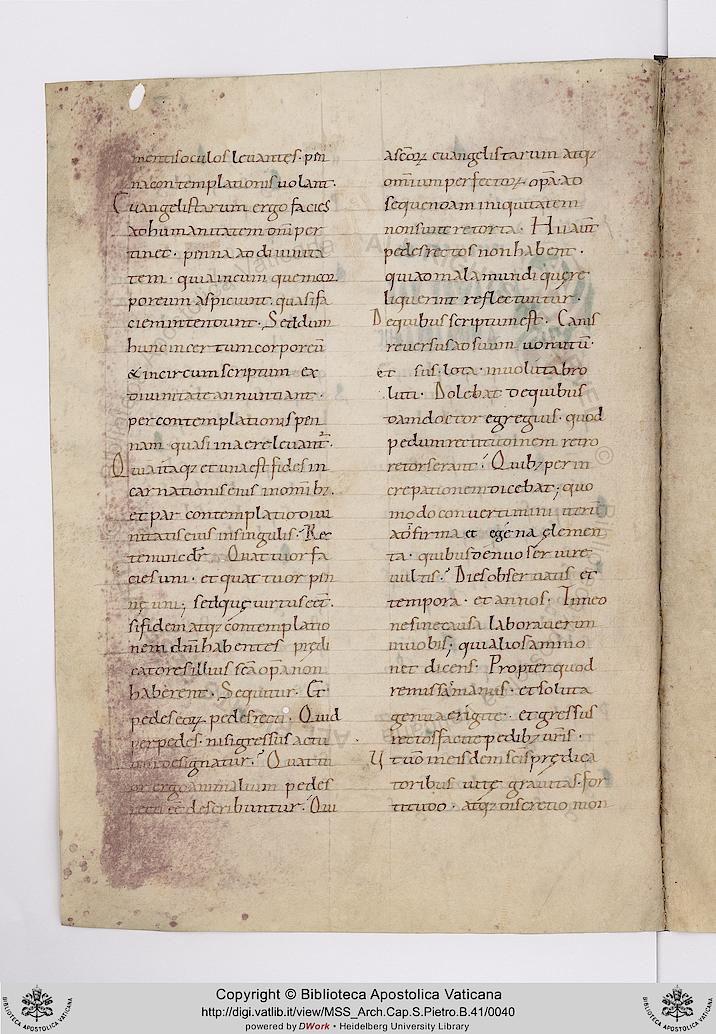 mentis oculos levantes · pen
na contemplationis volant ·
Euangelistarum ergo facies
ad humanitatem om̄ per
tinet · penna ad diuinita
tem · quia in eum quem cor
poreum aspiciunt · quasi fa
ciem intendunt · Sed dum
hunc incertum corporeū
& incircumscriptum ex
diuinitate annuntiant ·
per contemplationis pen
nam quasi in aere leuant̄ ·
Qua itaqꝫ et una est fides in
carnationis eius in om̄ibꝫ ·
et par contemplatio diui
nitatis eius in singulis · Rec
te nunc dr̄ · Quattuor fa
cies uni · et quattuor pen
nę uni; sed quę uirtus eēt ·
si fidem atqꝫ contemplatio
nem dn̄i habentes prędi
catores illius sc̄a op̄a non
haberent · Sequitur · Et
pedes eoꝝ pedes recti · Quid
per pedes · nisi gressus actu
um designatur? Quattu
or ergo animalium pedes
recti eē describuntur · Qui
a sc̄oꝝ euangelistarum atqꝫ
omnium perfectoꝝ op̄a ad
sequendam iniquitatem
non sunt retorta · Hi aut̄
pedes rectos non habent ·
qui ad mala mundi quę re
liquerint reflectuntur ·
De quibus scriptum est · Canis
reuersus ad suum uomitū ·
et sus lota · in uolutabro
luti · Dolebat de quibus
dam doctor egregius · quod
pedum rectitudinem retro
retorserant · Quibꝫ per in
crepationem dicebat; quo
modo conuertimini iterū
ad īfirma et egena elemen
ta · quibus denuo seruire
uultis? Dies obseruatis et
tempora · et annos · Timeo
ne sine causa laborauerim
in uobis; qui alios ammo
net dicens · Propter quod
remissa manus · et soluta
genua erigite · et gressus
rectos facite pedibꝫ uris̄ ·
Ut uō in eisdem sc̄is prędica
toribus uitę grauitas · for
titudo · atqꝫ discretio mon
Copyright © Biblioteca Apostolica Vaticana
http://digi.vatlib.it/view/MSS_Arch.Cap.S.Pietro.B.41/0040
powered by DWork • Heidelberg University Library
BIBLIOTECA APOSTOLICA VATICANA
BIBLIOTECA APOSTOLICA VATICANA